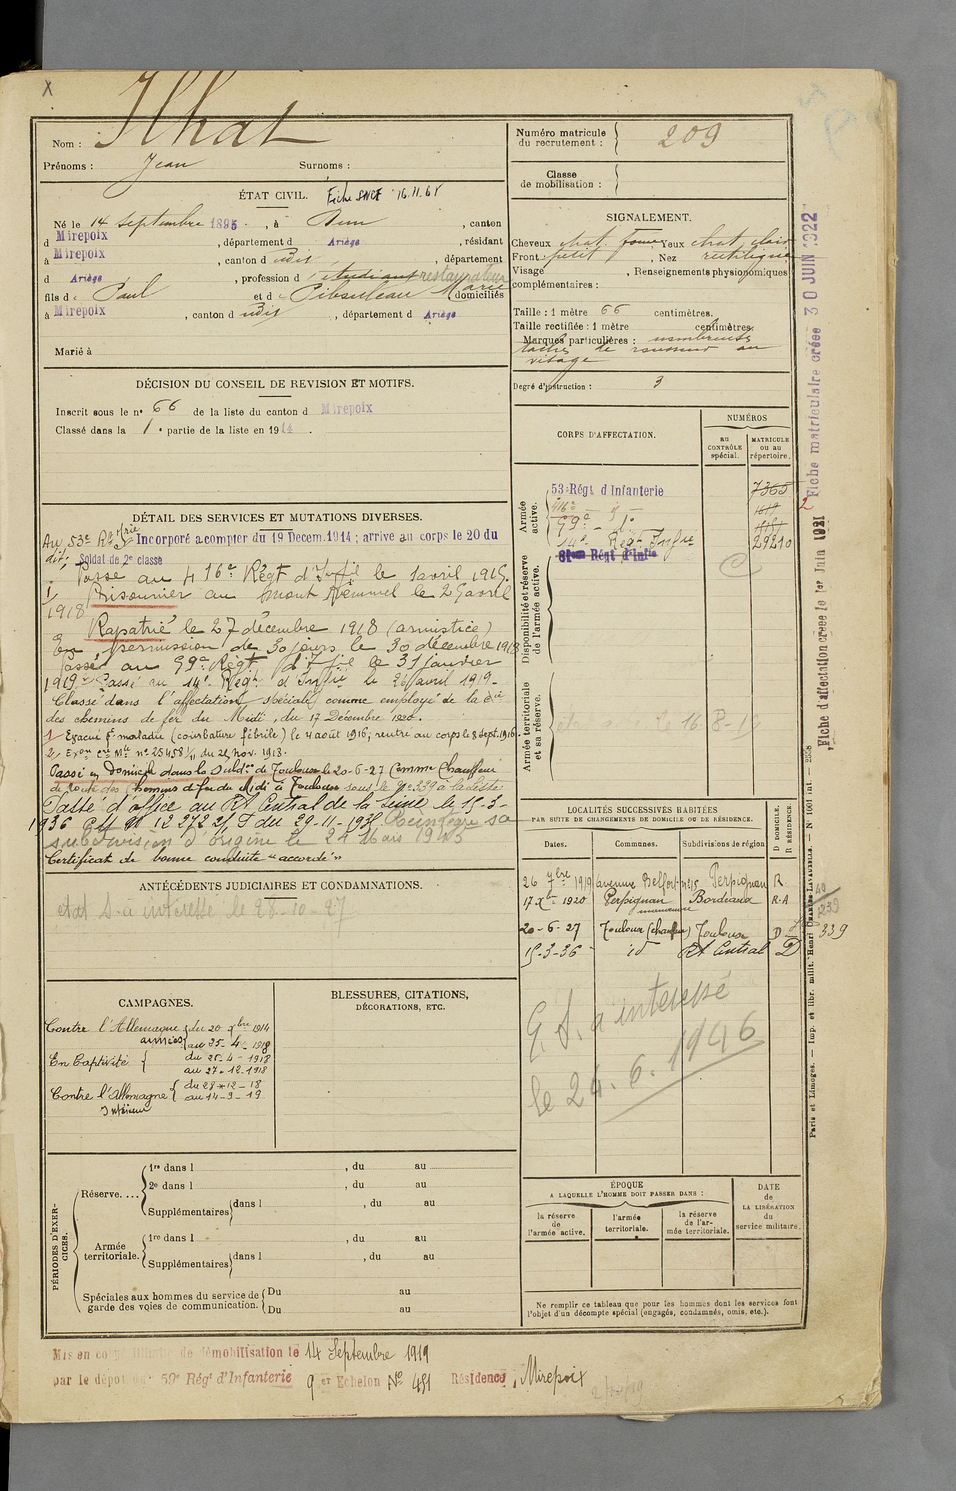 x
Nom : Ilhat
Prénoms : Jean Surnoms :
ÉTAT CIVIL. Fiche SNCF 16.11.61
Né le 14 Septembre 1895, à Dun, canton
d Mirepoix, département d Ariège, résidant
à Mirepoix, canton d udit, département
d Ariège, profession d étudiant restaurateur
fils de Paul et de Marie domiciliés
à Mirepoix, canton d udit, département d Ariège
Marié à
DÉCISION DU CONSEIL DE REVISION ET MOTIFS.
Inscrit sous le n° 66 de la liste du canton d Mirepoix
Classé dans la 1e partie de la liste en 1914.
DÉTAIL DES SERVICES ET MUTATIONS DIVERSES.
Au 53e Rt Incorporé à compter du 19 Décem. 1914 ; arrivé au corps le 20 du
dit; Soldat de 2e classe
Passé au 416e Régt d'Infie le 1 avril 1915.
1/ Prisonnier au mont Kemmel le 25 avril
1918
Rapatrié le 27 décembre 1918 (armistice)
En permission de 30 jours le 30 décembre 1918
Passé au 99e Régt d'Infie le 31 janvier
1919. Passé au 14e Régt d'Infie le 26 avril 1919.
Classé dans l'affectation spéciale comme employé de la Cie
des chemins de fer du Midi, du 17 Décembre 1920.
1/ Evacué pr maladie (courbature fébrile) le 4 août 1916, rentré au corps le 8 sept. 1916.
Passé en Domicile dans la Subdon de Toulouse le 20-6-27 Comme Chauffeur
de Route des Chemins de fer du Midi à Toulouse sous le No 339 à la Liste
Passé d'office au Rt Central de la Seine le 15-3-
1936 Réintégré sa
subdivision d'origine le 24 Mars 1945
Certificat de bonne conduite "accordé"
ANTÉCÉDENTS JUDICIAIRES ET CONDAMNATIONS.
état s. à intéressé le 28-10-27
CAMPAGNES.
Contre l'Allemagne armées du 20 Xbre 1914
au 25-4-1918
En Captivité du 25-4-1918
au 27-12-1918
Contre l'Allemagne Intérieur du 28-12-18
au 14-9-19
BLESSURES, CITATIONS,
DÉCORATIONS, ETC.
PÉRIODES D'EXERCICES.
Réserve....
1re dans l , du au
2e dans l , du au
Supplémentaires dans l , du au
Armée territoriale.
1re dans l , du au
Supplémentaires dans l , du au
Spéciales aux hommes du service de garde des voies de communication.
Du au
Du au
Numéro matricule du recrutement : 209
Classe de mobilisation :
SIGNALEMENT.
Cheveux chat. foncé Yeux chat. clair
Front petit, Nez rectiligne
Visage , Renseignements physionomiques
complémentaires :
Taille : 1 mètre 66 centimètres.
Taille rectifiée : 1 mètre centimètres.
Marques particulières : nombreuses
taches de rousseur au
visage
Degré d'instruction : 3
CORPS D'AFFECTATION.
NUMÉROS
AU CONTRÔLE spécial.
MATRICULE OU AU répertoire.
Armée active.
53e Régt d'Infanterie 7365
416e
99e
14e Régt Infie 29210
81eme Régt d'Infie
Disponibilité et réserve de l'armée active.
Armée territoriale et sa réserve.
LOCALITÉS SUCCESSIVES HABITÉES
PAR SUITE DE CHANGEMENTS DE DOMICILE OU DE RÉSIDENCE.
Dates. Communes. Subdivisions de région D DOMICILE. R RÉSIDENCE.
26 7bre 1919 avenue Belfort no 15 Perpignan R
17 Xbre 1920 Perpignan Bordeaux R.A
20-6-27 Toulouse (chauffeur) Toulouse D 339
15-3-36 id Rt Central D
à intéressé
le 24.6.1946
ÉPOQUE
A LAQUELLE L'HOMME DOIT PASSER DANS :
la réserve de l'armée active.
l'armée territoriale.
la réserve de l'armée territoriale.
DATE de LA LIBÉRATION du service militaire.
Ne remplir ce tableau que pour les hommes dont les services font
l'objet d'un décompte spécial (engagés, condamnés, omis, etc.).
Fiche matriculaire créée 30 JUIN 1922
Fiche d'affectation créée le 1er Juin 1921
Paris et Limoges. — Imp. et libr. milit. Henri CHARLES-LAVAUZELLE. N° 1001 int.
Mis en congé illimité de démobilisation le 14 Septembre 1919
par le dépôt du 59e Régt d'Infanterie 9 er Echelon No 481 Résidence, Mirepoix